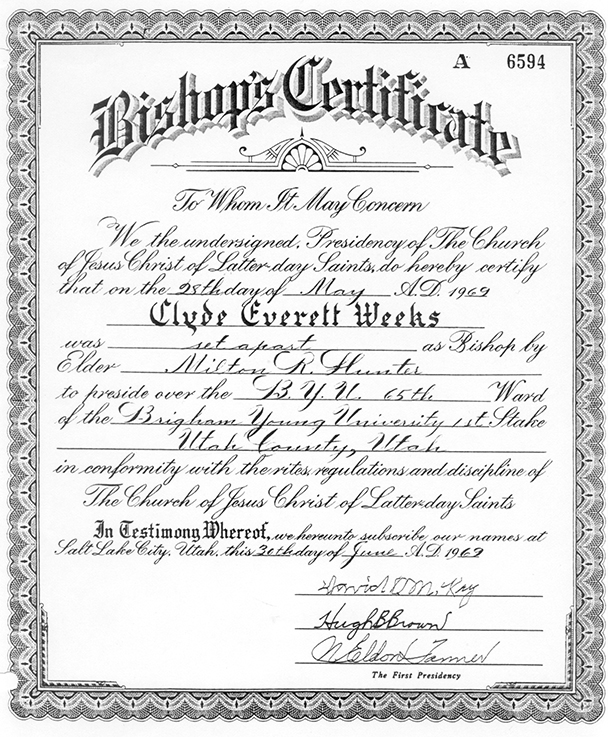 A 6594
Bishop's Certificate
To Whom It May Concern
We the undersigned, Presidency of The Church
of Jesus Christ of Latter-day Saints, do hereby certify
that on the 28th day of May A.D. 1969
Clyde Everett Weeks
was set apart as Bishop by
Elder Milton R. Hunter
to preside over the B.Y.U. 65th Ward
of the Brigham Young University 1st Stake
Utah County, Utah
in conformity with the rites, regulations and discipline of
The Church of Jesus Christ of Latter-day Saints
In Testimony Whereof, we hereunto subscribe our names at
Salt Lake City, Utah, this 30th day of June A.D. 1969
David O. McKay
Hugh B Brown
N Eldon Tanner
The First Presidency